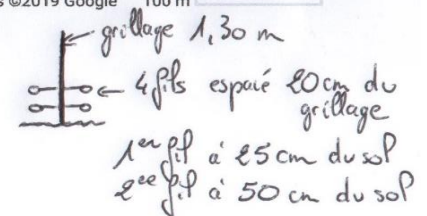 s ©2019 Google 100 m
grillage 1,30 m
4 fils espaié 20 cm du
grillage
1er fil à 25 cm du sol
2ee fil à 50 cm du sol